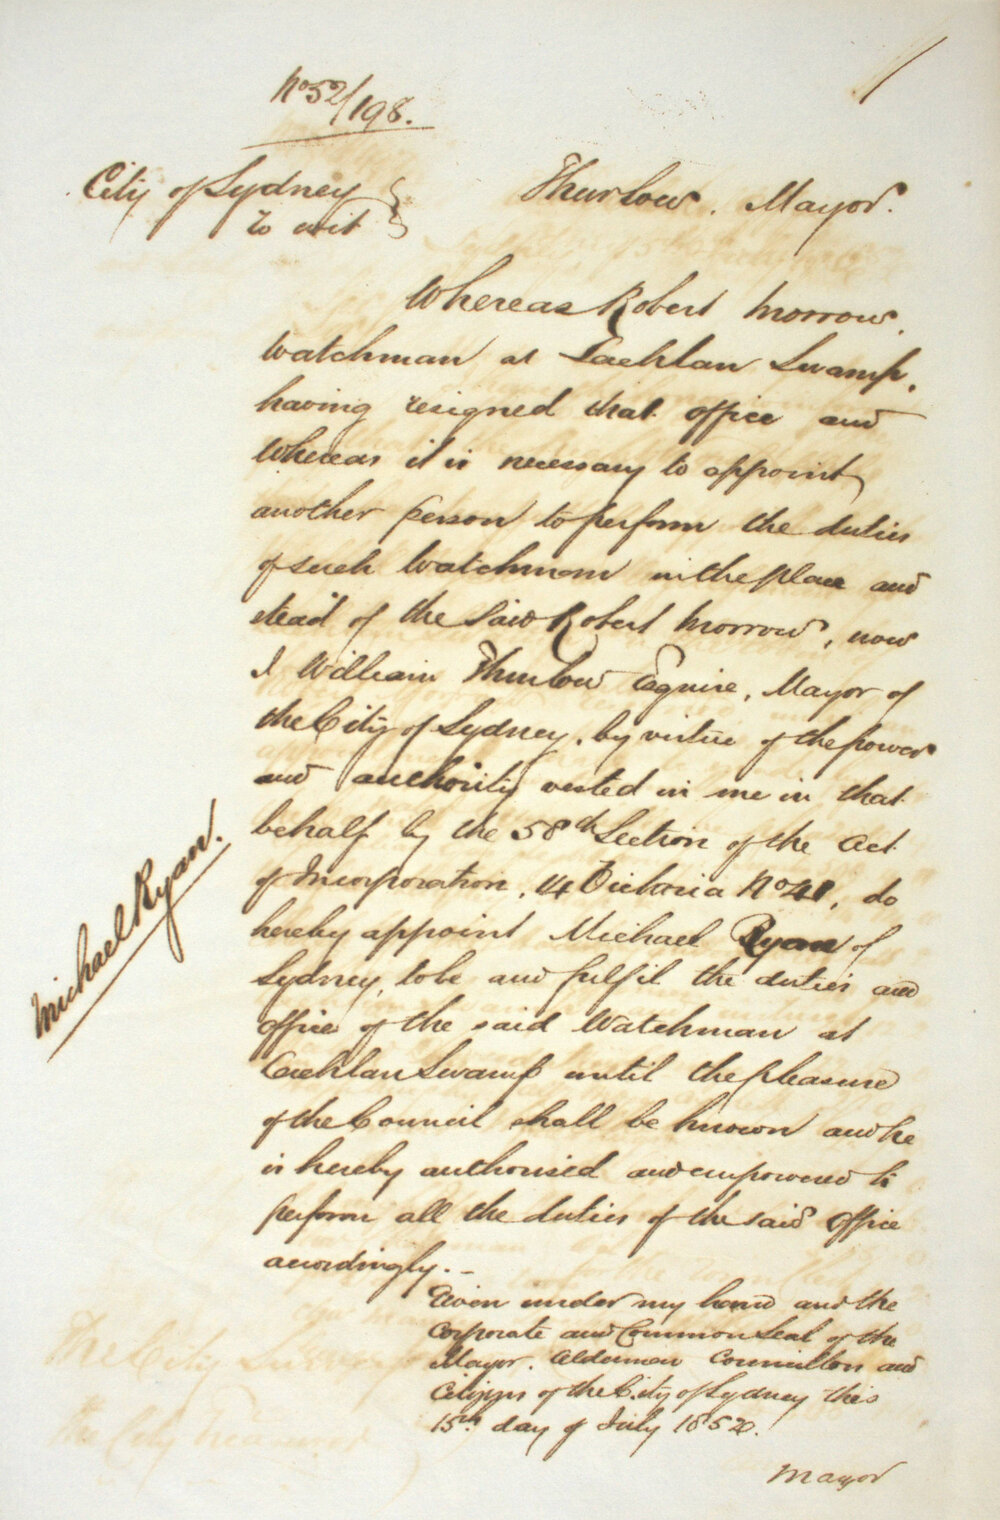 No 52/198.
City of Sydney
to wit
Thurlow. Mayor.
Whereas Robert Morrow,
Watchman at Lachlan Swamp,
having resigned that office and
Whereas it is necessary to appoint
another person to perform the duties
of such Watchman in the place and
stead of the said Robert Morrow, now
I William Thurlow Esquire, Mayor of
the City of Sydney, by virtue of the power
and authority vested in me in that
behalf by the 58th Section of the Act
of Incorporation, 14 Victoria No 41, do
hereby appoint Michael Ryan of
Sydney, to be and fulfil the duties and
office of the said Watchman at
Lachlan Swamp until the pleasure
of the Council shall be known and he
is hereby authorised and empowered to
perform all the duties of the said office
accordingly. –
Michael Ryan.
Given under my hand and the
Corporate and Common Seal of the
Mayor. Aldermen Councillors and
Citizens of the City of Sydney this
15th day of July 1852.
Mayor